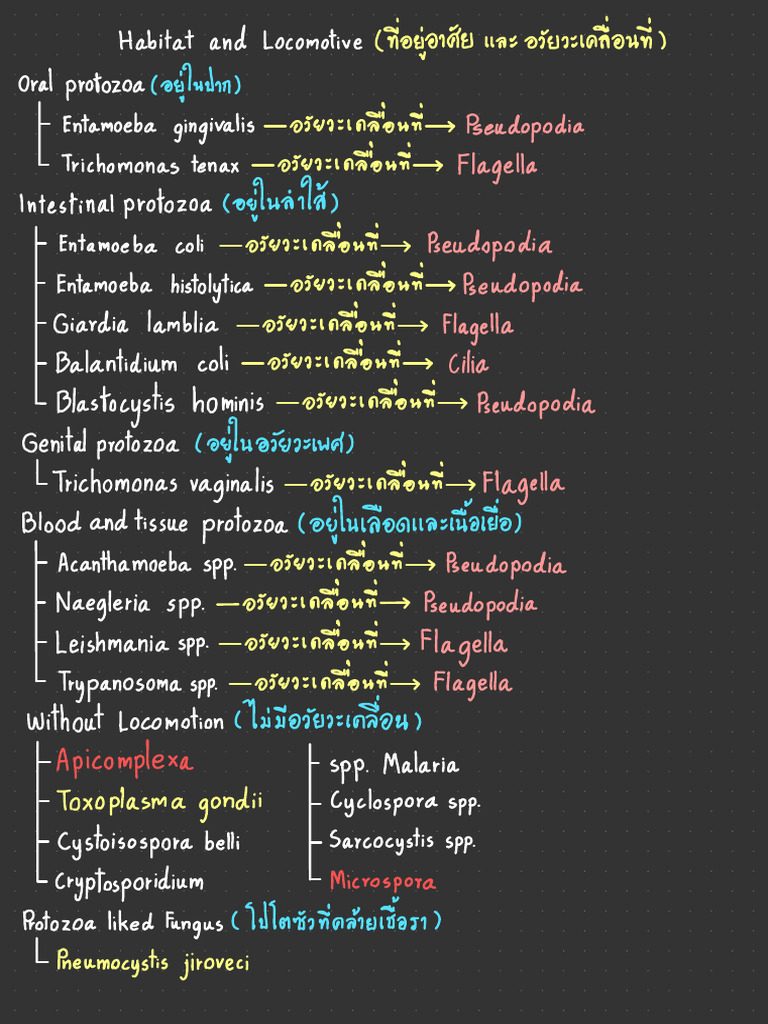 Habitat and Locomotive (ที่อยู่อาศัย และ อวัยวะเคลื่อนที่)
Oral protozoa (อยู่ในปาก)
Entamoeba gingivalis — อวัยวะเคลื่อนที่ → Pseudopodia
Trichomonas tenax — อวัยวะเคลื่อนที่ → Flagella
Intestinal protozoa (อยู่ในลำไส้)
Entamoeba coli — อวัยวะเคลื่อนที่ → Pseudopodia
Entamoeba histolytica — อวัยวะเคลื่อนที่ → Pseudopodia
Giardia lamblia — อวัยวะเคลื่อนที่ → Flagella
Balantidium coli — อวัยวะเคลื่อนที่ → Cilia
Blastocystis hominis — อวัยวะเคลื่อนที่ → Pseudopodia
Genital protozoa (อยู่ในอวัยวะเพศ)
Trichomonas vaginalis — อวัยวะเคลื่อนที่ → Flagella
Blood and tissue protozoa (อยู่ในเลือดและเนื้อเยื่อ)
Acanthamoeba spp. — อวัยวะเคลื่อนที่ → Pseudopodia
Naegleria spp. — อวัยวะเคลื่อนที่ → Pseudopodia
Leishmania spp. — อวัยวะเคลื่อนที่ → Flagella
Trypanosoma spp. — อวัยวะเคลื่อนที่ → Flagella
Without Locomotion (ไม่มีอวัยวะเคลื่อน)
Apicomplexa
Toxoplasma gondii
Cystoisospora belli
Cryptosporidium
spp. Malaria
Cyclospora spp.
Sarcocystis spp.
Microspora
Protozoa liked Fungus (โปโตซัวที่คล้ายเชื้อรา)
Pneumocystis jiroveci